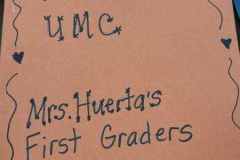 UMC.
Mrs. Huerta's
First Graders